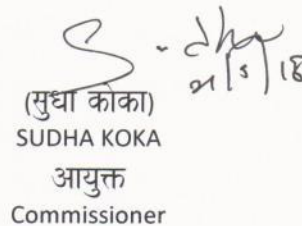 (सुधा कोका)
SUDHA KOKA
आयुक्त
Commissioner